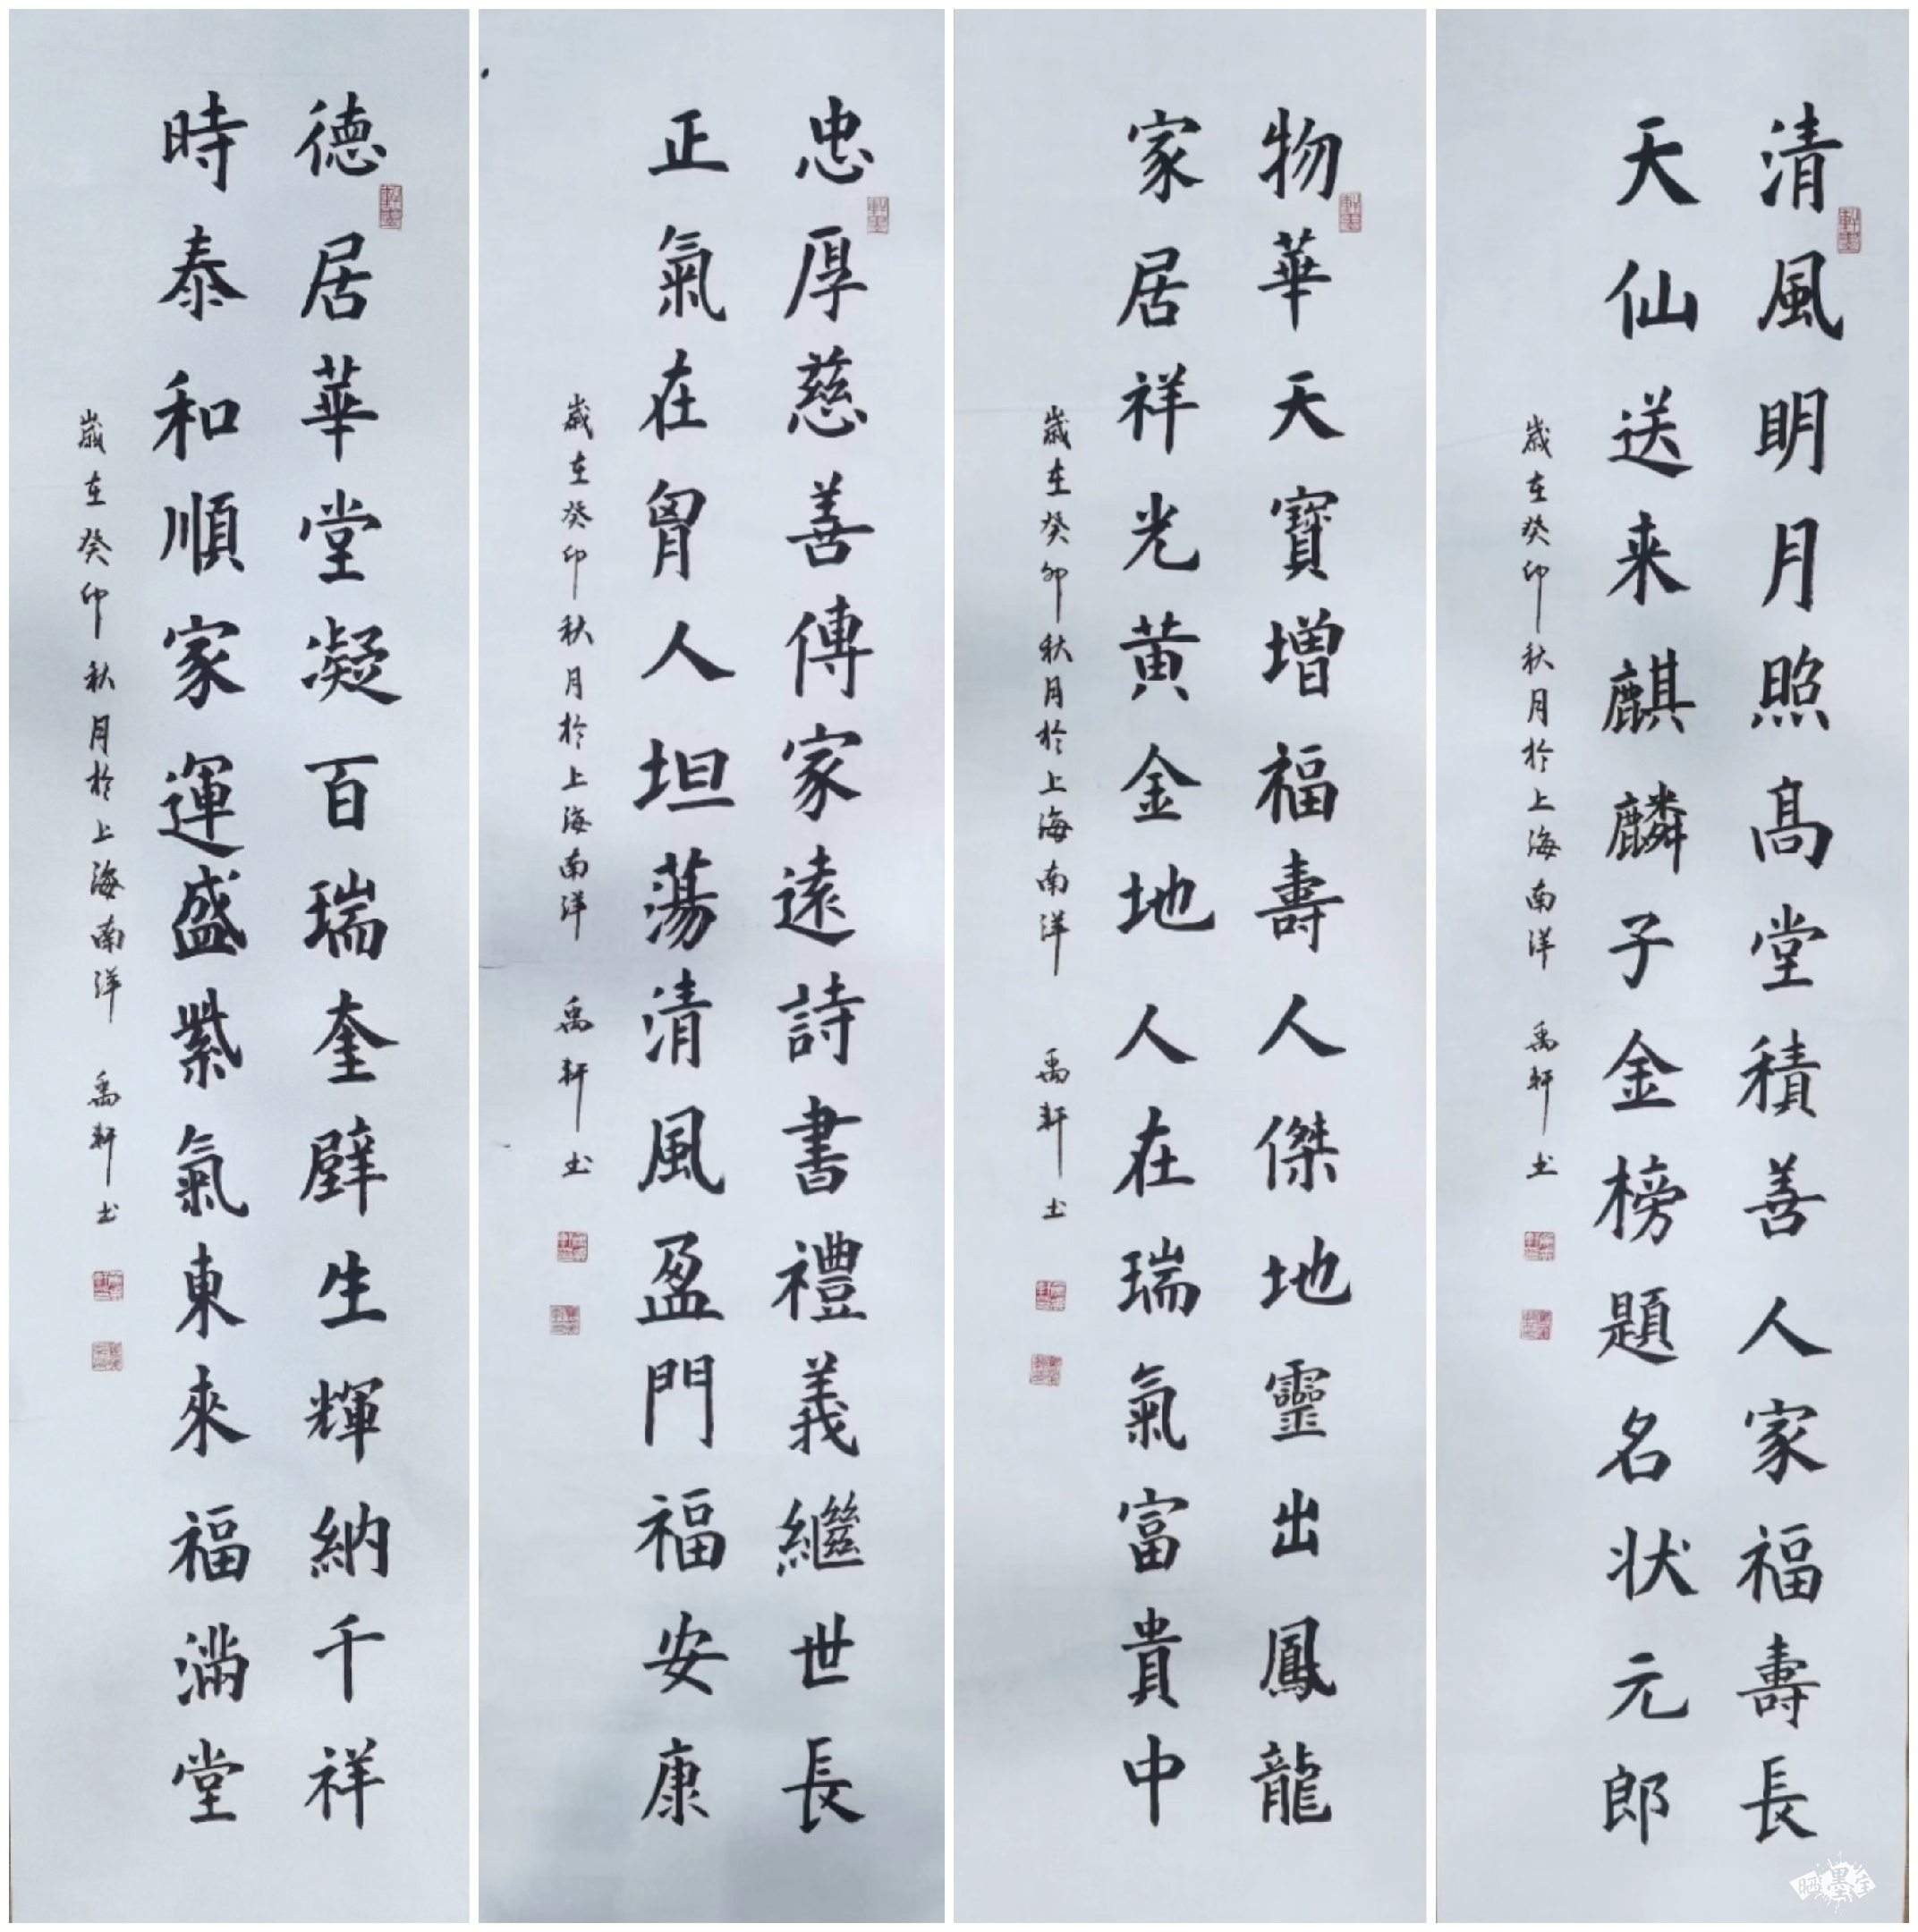 清風明月照髙堂積善人家福壽長
天仙送来麒麟子金榜題名状元郎
歲在癸卯秋月於上海南洋 禹軒书
物華天寶增福壽人傑地靈出鳳龍
家居祥光黄金地人在瑞氣富貴中
歲在癸卯秋月於上海南洋 禹軒书
忠厚慈善傳家遠詩書禮義繼世長
正氣在胷人坦蕩清風盈門福安康
歲在癸卯秋月於上海南洋 禹軒书
德居華堂凝百瑞奎壁生輝納千祥
時泰和順家運盛紫氣東來福滿堂
歲在癸卯秋月於上海南洋 禹軒书
晒墨宝